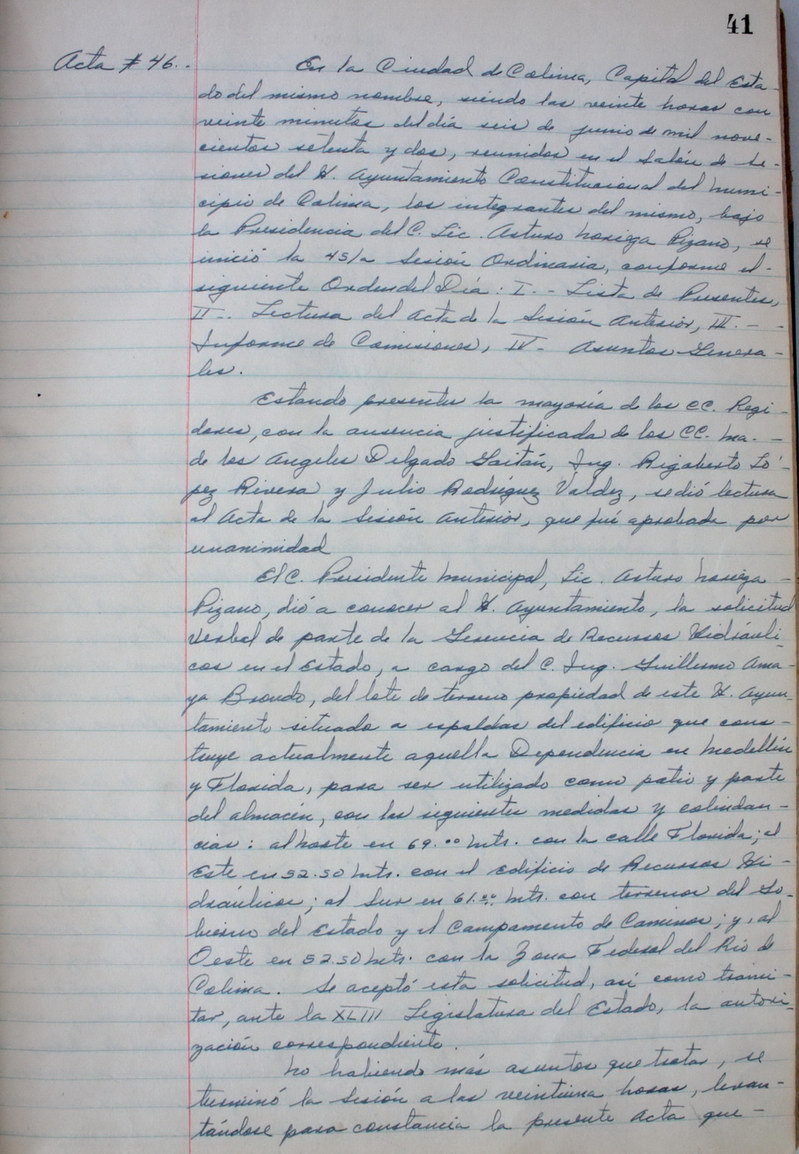 41
Acta # 46.. En la Ciudad de Colima, Capital del Esta-
do del mismo nombre, siendo las veinte horas con
veinte minutos del día seis de junio de mil nove-
cientos setenta y dos, reunidos en el Salón de Se-
siones del H. Ayuntamiento Constitucional del Muni-
cipio de Colima, los integrantes del mismo, bajo
la Presidencia del C. Lic. Arturo Noriega Pizano, se
inició la 45/a Sesión Ordinaria, conforme el
siguiente Orden del Día: I.- Lista de Presentes,
II-. Lectura del Acta de la Sesión Anterior, III.--
Informe de Comisiones, IV- Asuntos Genera-
les.
Estando presentes la mayoría de los CC. Regi-
dores, con la ausencia justificada de los CC. Ma.-
de los Angeles Delgado Gaitán, Ing. Rigoberto Ló-
pez Rivera y Julio Rodríguez Valdez, se dió lectura
al Acta de la Sesión Anterior, que fué aprobada por
unanimidad
El C. Presidente Municipal, Lic. Arturo Noriega-
Pizano, dió a conocer al H. Ayuntamiento, la solicitud
verbal de parte de la Gerencia de Recursos Hidráuli-
cos en el Estado, a cargo del C. Ing. Guillermo Ama-
ya Brondo, del lote de terreno propiedad de este H. Ayun-
tamiento situado a espaldas del edificio que cons-
truye actualmente aquella Dependencia en Medellín
y Florida, para ser utilizado como patio y parte
del almacén, con las siguientes medidas y colindan-
cias: al Norte en 69.00 Mts. con la calle Florida; al
Este en 52.50 Mts. con el edificio de Recursos Hi-
dráulicos; al Sur en 61.00 Mts. con terrenos del Go-
bierno del Estado y el Campamento de Caminos; y, al
Oeste en 52.50 Mts. con la Zona Federal del Río de
Colima. Se aceptó esta solicitud, así como trami-
tar, ante la XLIII Legislatura del Estado, la autori-
zación correspondiente.
No habiendo más asuntos que tratar, se
terminó la Sesión a las veintiuna horas, levan-
tándose para constancia la presente Acta que-